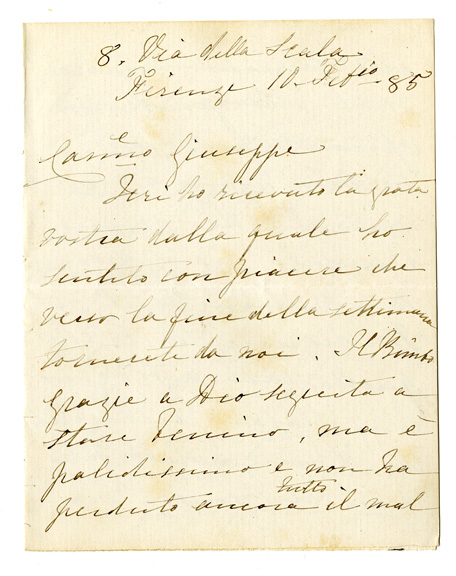 8. Via della Scala
Firenze 10. Febio. 85
Carmo e Giuseppe
Ieri ho ricevuto la grata
vostra dalla quale ho
sentito con piacere che
verso la fine della settimana
tornerete da noi. Il Bimbo
grazie a Dio seguita a
stare benino, ma è
palidissimo e non ha
perduto ancora tutto il mal